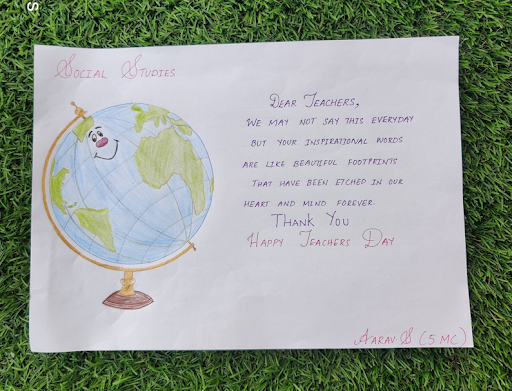 S
Social Studies
Dear Teachers,
We may not say this everyday
but your inspirational words
are like beautiful footprints
that have been etched in our
heart and mind forever
Thank You
Happy Teachers Day
Aarav S (5 MC)